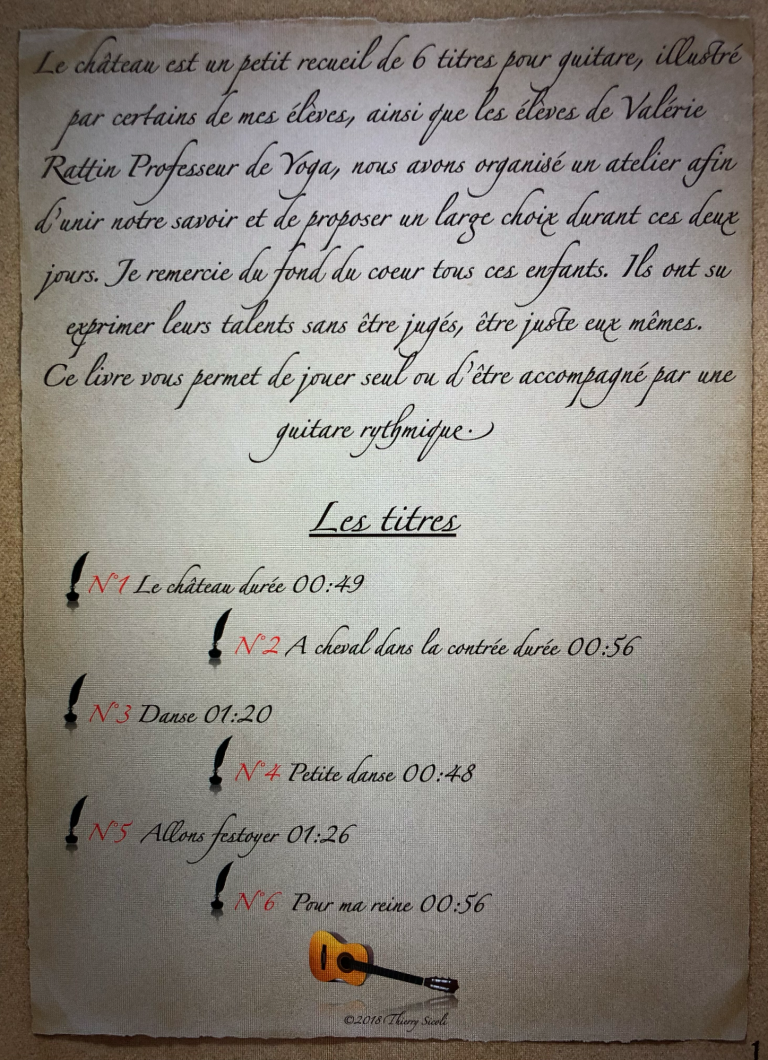 Le château est un petit recueil de 6 titres pour guitare, illustré
par certains de mes élèves, ainsi que les élèves de Valérie
Rattin Professeur de Yoga, nous avons organisé un atelier afin
d'unir notre savoir et de proposer un large choix durant ces deux
jours. Je remercie du fond du coeur tous ces enfants. Ils ont su
exprimer leurs talents sans être jugés, être juste eux mêmes.
Ce livre vous permet de jouer seul ou d'être accompagné par une
guitare rythmique.
Les titres
N°1 Le château durée 00:49
N°2 A cheval dans la contrée durée 00:56
N°3 Danse 01:20
N°4 Petite danse 00:48
N°5 Allons festoyer 01:26
N°6 Pour ma reine 00:56
©2018 Thierry Sicoli
1